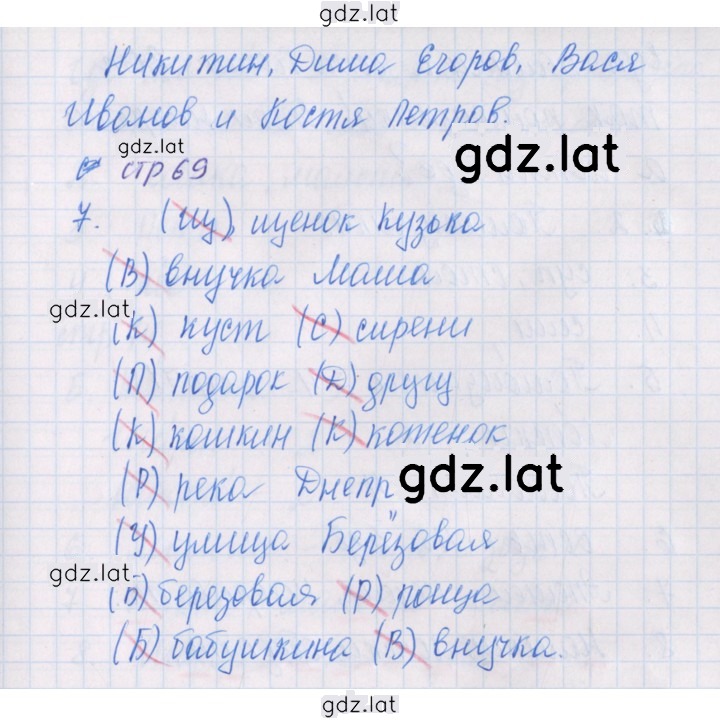 gdz.lat
Никитин, Дима Егоров, Вася
Иванов и Костя Петров.
gdz.lat
gdz.lat
стр 69
7. (Щ), щенок Кузька
(В) внучка Маша
gdz.lat
(К) куст (С) сирени
(П) подарок (Д) другу
(К) кошкин (К) котенок
gdz.lat
(Р) река Днепр
(У) улица Берёзовая
gdz.lat
(Б) березовая (Р) роща
(Б) бабушкина (В) внучка.
gdz.lat